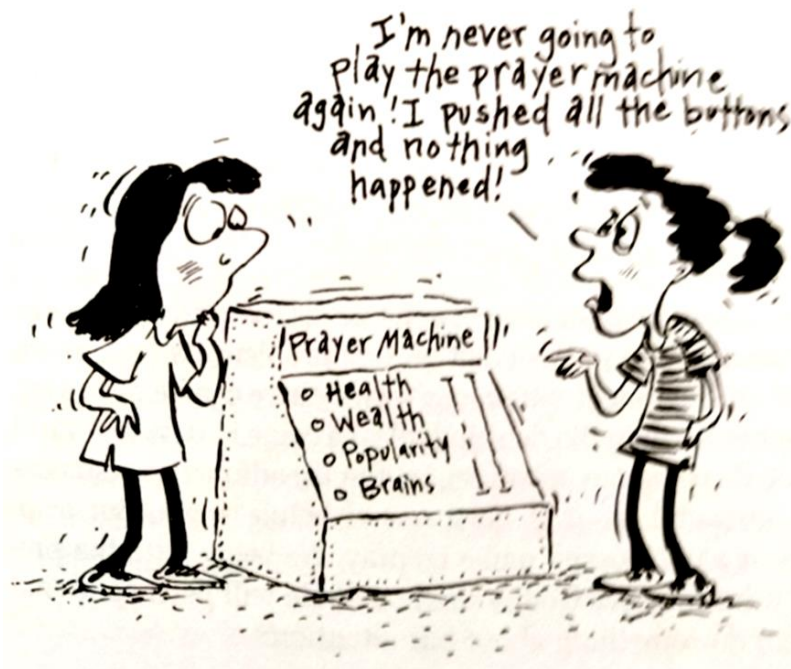 I'm never going to
play the prayer machine
again! I pushed all the buttons
and nothing
happened!
Prayer Machine
Health
Wealth
Popularity
Brains